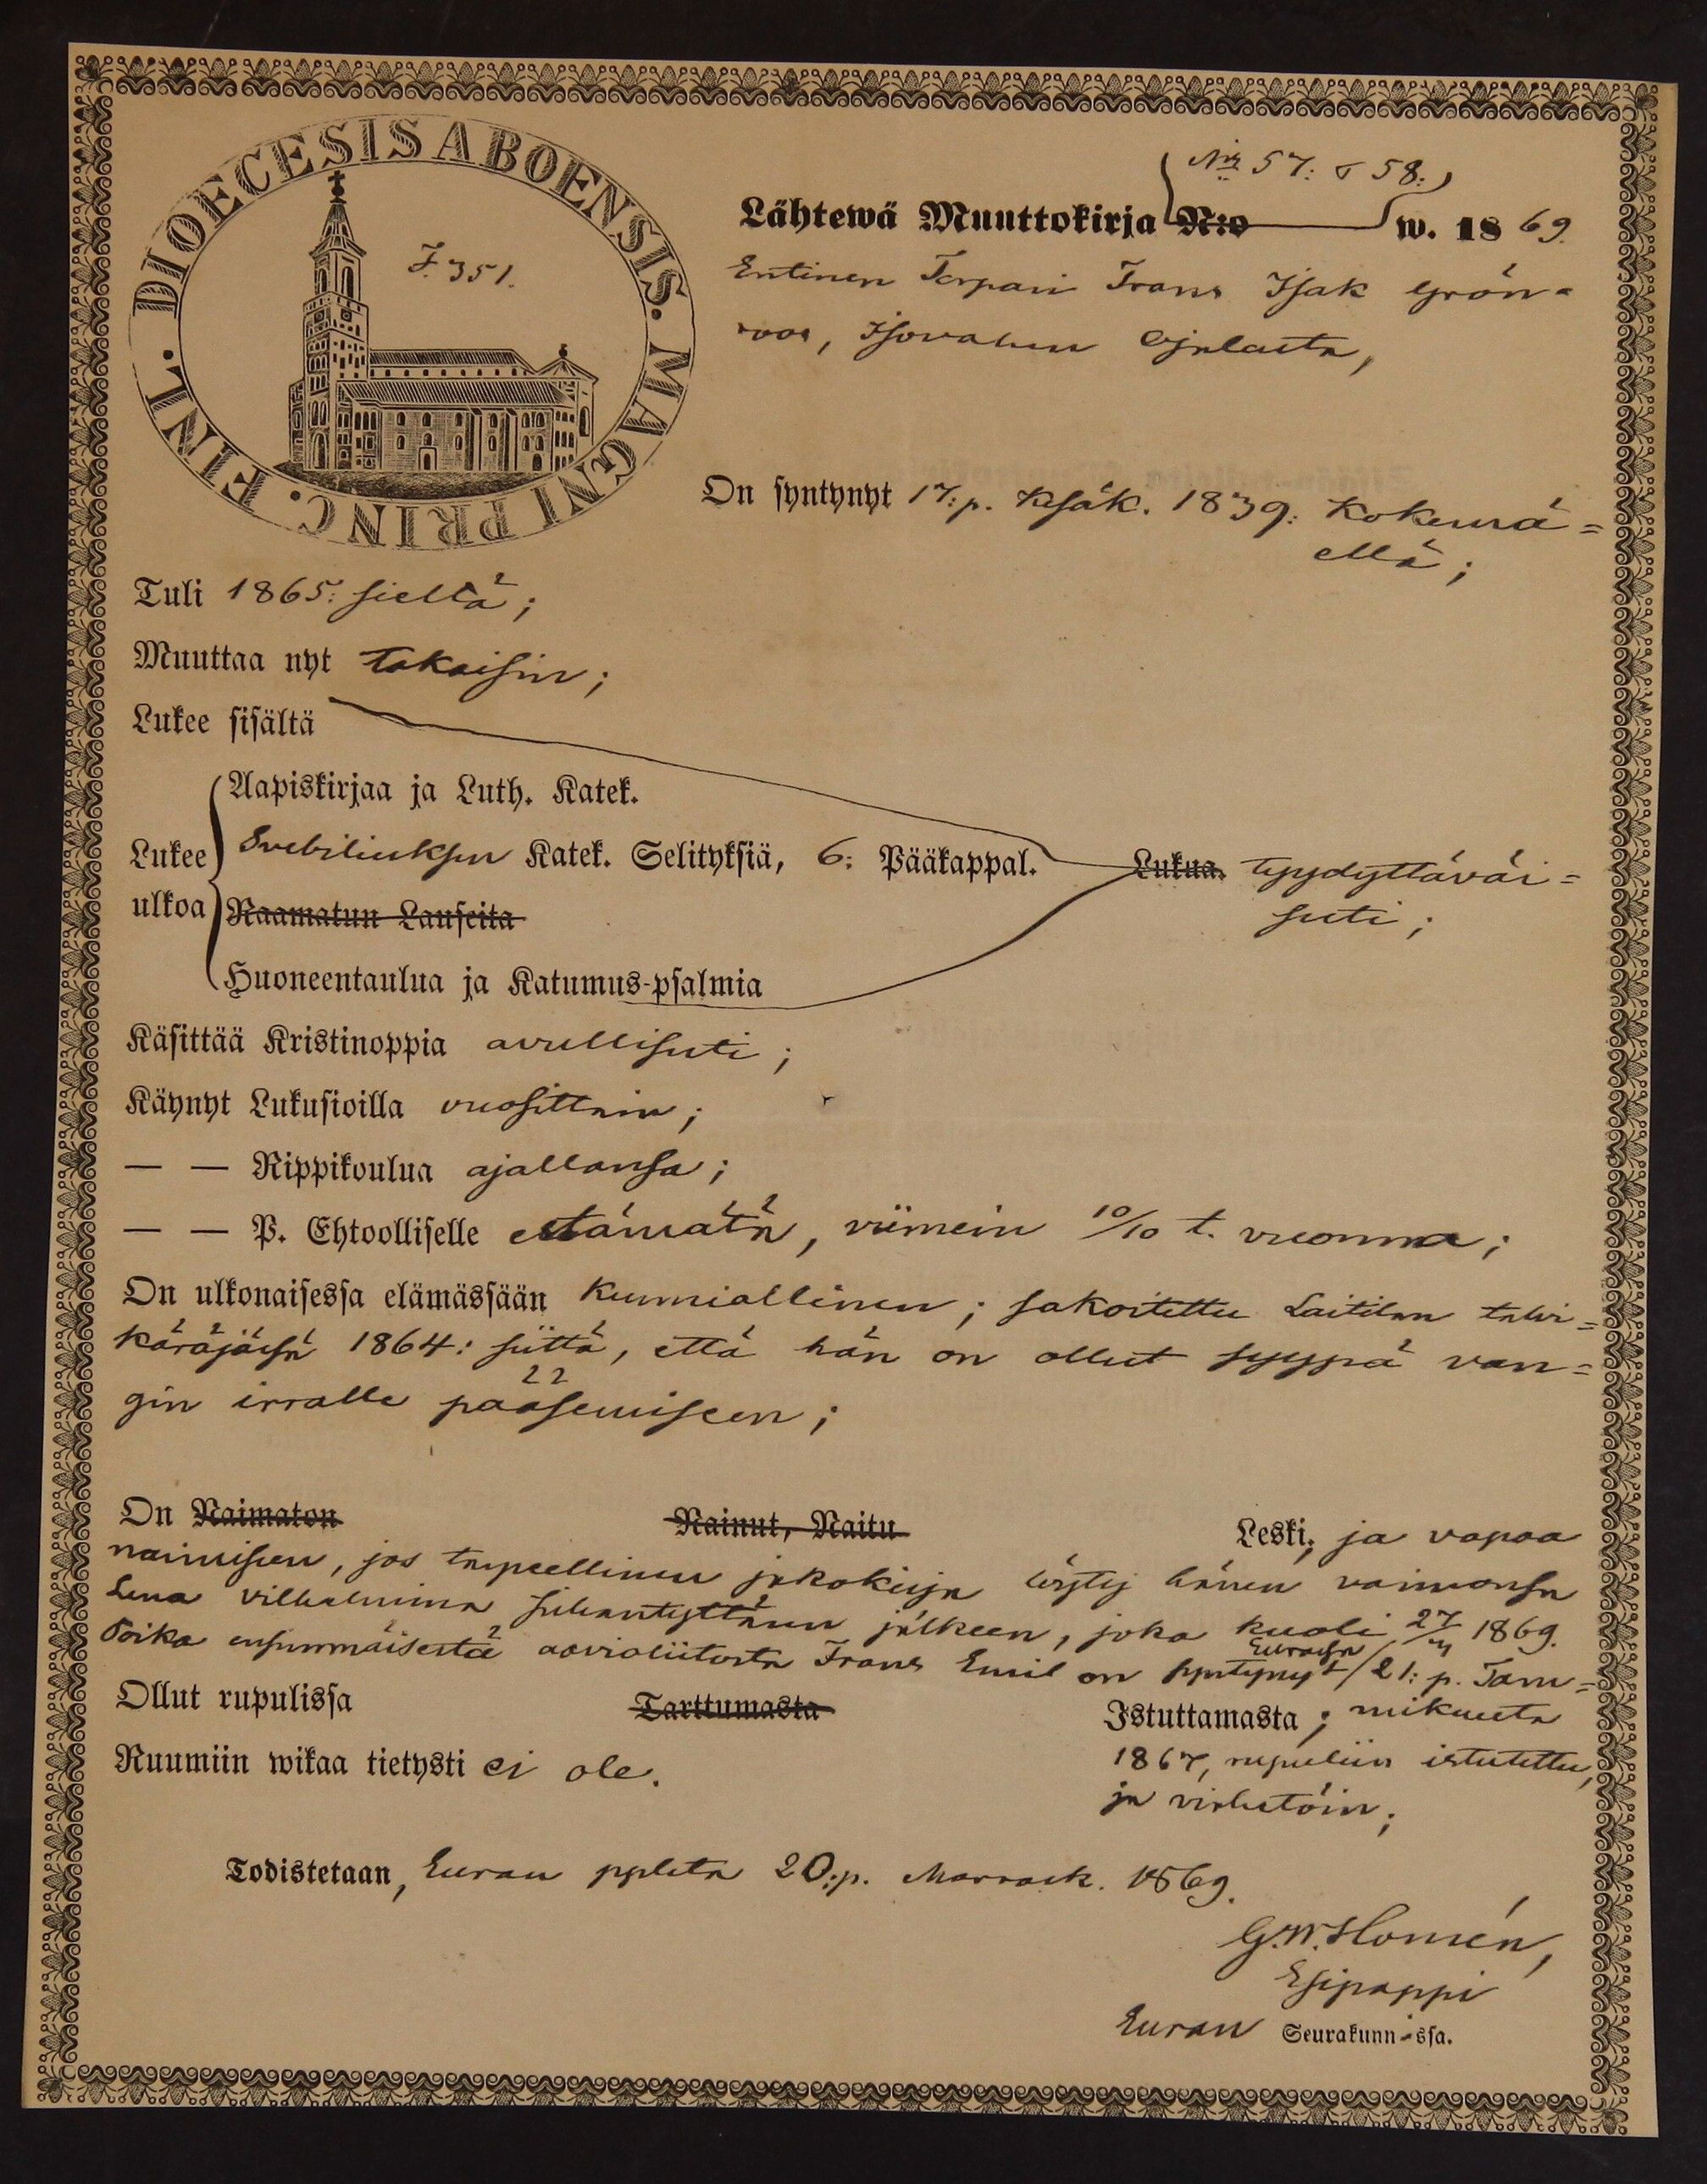 DIOECESIS ABOENSIS. MAGNI PRINC. FINL.
F. 351.
Nis 57: & 58:
Lähtewä Muuttokirja N:o w. 1869.
Entinen Torpari Frans Isak Grön=
roos, Isovahen Ojalasta,
On syntynyt 17:p. Kesäk. 1839: Kokemä=
ellä;
Tuli 1865: sieltä;
Muuttaa nyt takaisin;
Lukee sisältä
Aapiskirjaa ja Luth. Katek.
Lukee Svebiliuksen Katek. Selityksiä, 6: Pääkappal. Lukua. tyydyttäväi=
sesti;
ulkoa Raamatun Lauseita
Huoneentaulua ja Katumus-psalmia
Käsittää Kristinoppia avullisesti;
Käynyt Lukusioilla vuosittain;
— — Rippikoulua ajallansa;
— — P. Ehtoolliselle estämätä, viimein 10/10 t. vuonna;
On ulkonaisessa elämässään kunniallinen; sakoitettu Laitilan talvi=
käräjäisä 1864: siitä, että hän on ollut syypä van=
gin irralle pääsemiseen;
On Naimaton Nainut, Naitu Leski; ja vapaa
naimiseen, jos tarpeellinen jakokirja löytyy hänen vaimonsa
Lena Vilhelmina Juhantyttären jälkeen, joka kuoli 27/ 1869.
Poika ensimmäisestä avioliitosta Frans Emil on syntynyt / Eurassa 21: p. Tam=
Ollut rupulissa Tarttumasta Istuttamasta; mikuuta
1867, rupuliin istutettu,
Ruumiin wikaa tietysti ei ole.
ja virhetöin;
Todistetaan, Euran pplsta 20:p. Marrask. 1869.
G.W. Homén,
Esipappi
Euran Seurakunn-ssa.